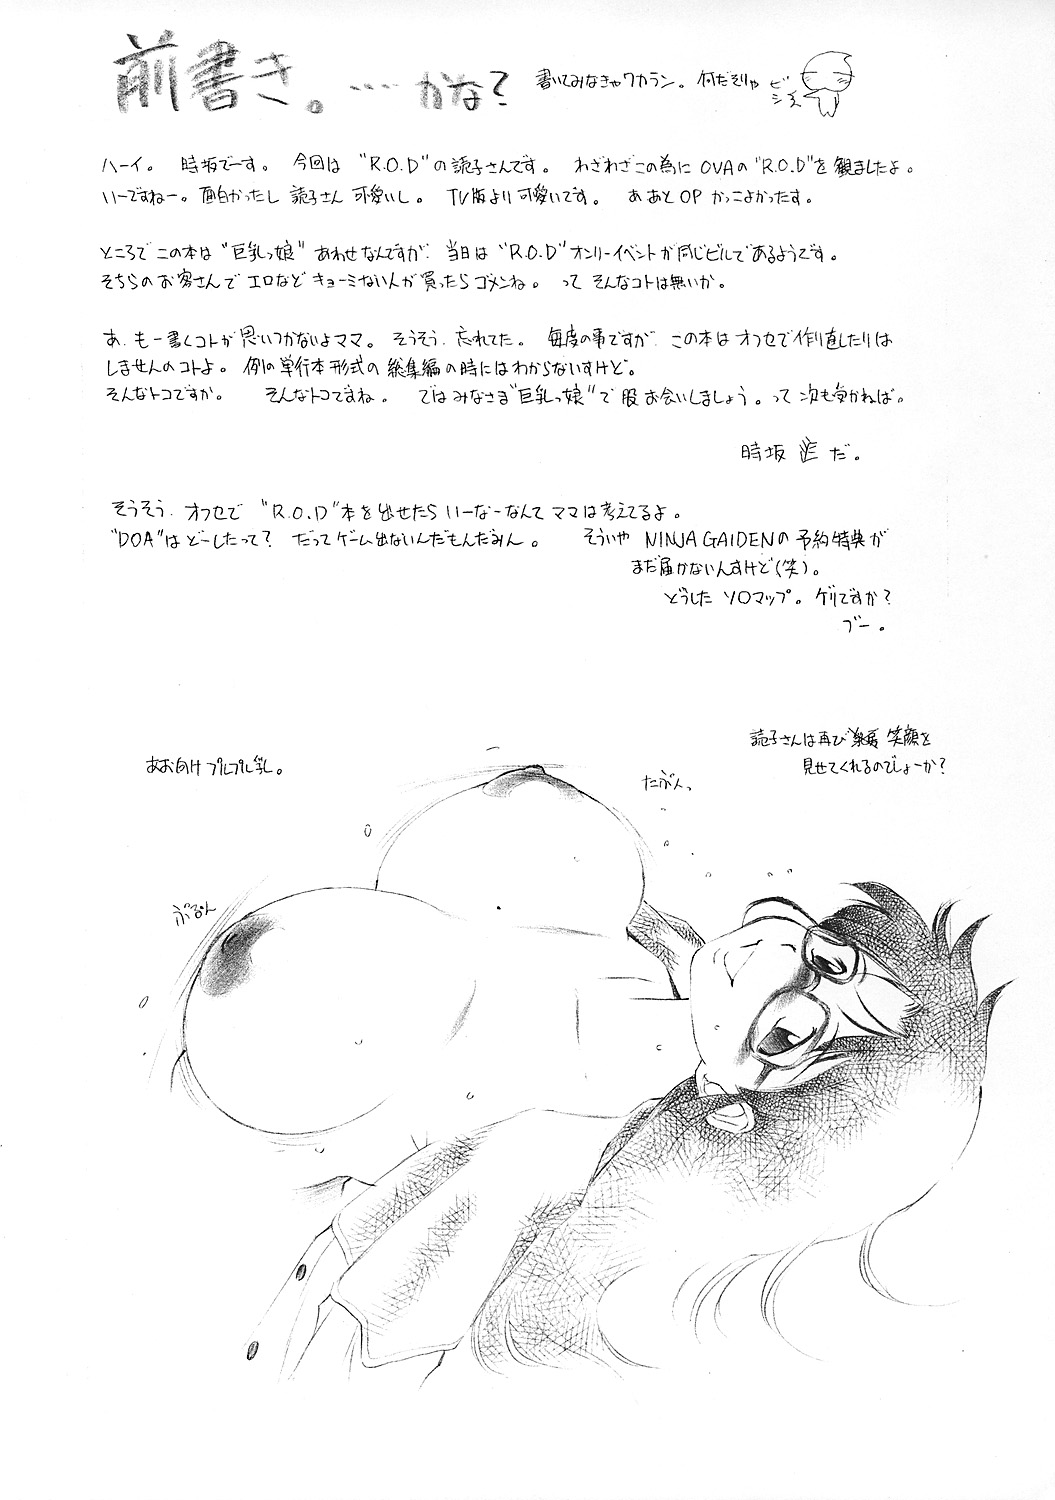 前書き。……かな?
書いてみなきゃワカラン。何だそりゃ
ビシえ
ハーイ。 時坂でーす。 今回は "R.O.D"の読子さんです。 わざわざこの為にOVAの"R.O.D"を観ましたよ。
いーですねー。面白かったし 読子さん 可愛いし。 TV版より可愛いです。 あ あとOP かっこよかったす。
ところで この本は"巨乳っ娘" あわせなんですが、当日は"R.O.D"オンリーイベントが同じビルであるようです。
そちらのお客さんで エロなど キョーミない人が買ったらゴメンね。 って そんなコトは無いか。
あ、もー書くコトが思いつかないよママ。 そうそう、忘れてた。 毎度の事ですが、この本はオフセで作り直したりは
しませんのコトよ。 例の単行本形式の総集編の時にはわからないすけど。
そんなトコですか。 そんなトコですね。 ではみなさま"巨乳っ娘"で 股お会いしましょう。って 次も受かれば。
時坂 だ。
そうそう、オフセで "R.O.D"本を出せたら いーなーなんて ママは考えてるよ。
"DOA"はどーしたって? だってゲーム出ないんだもんだみん。 そういや NINJA GAIDENの予約特典が
まだ届かないんすけど(笑)。
どうした ソロマップ。 ゲリですか?
ブー。
読子さんは再び 笑顔を
見せてくれるのでしょーか?
あお向けプルプル乳。
たぷんっ
ぷるん